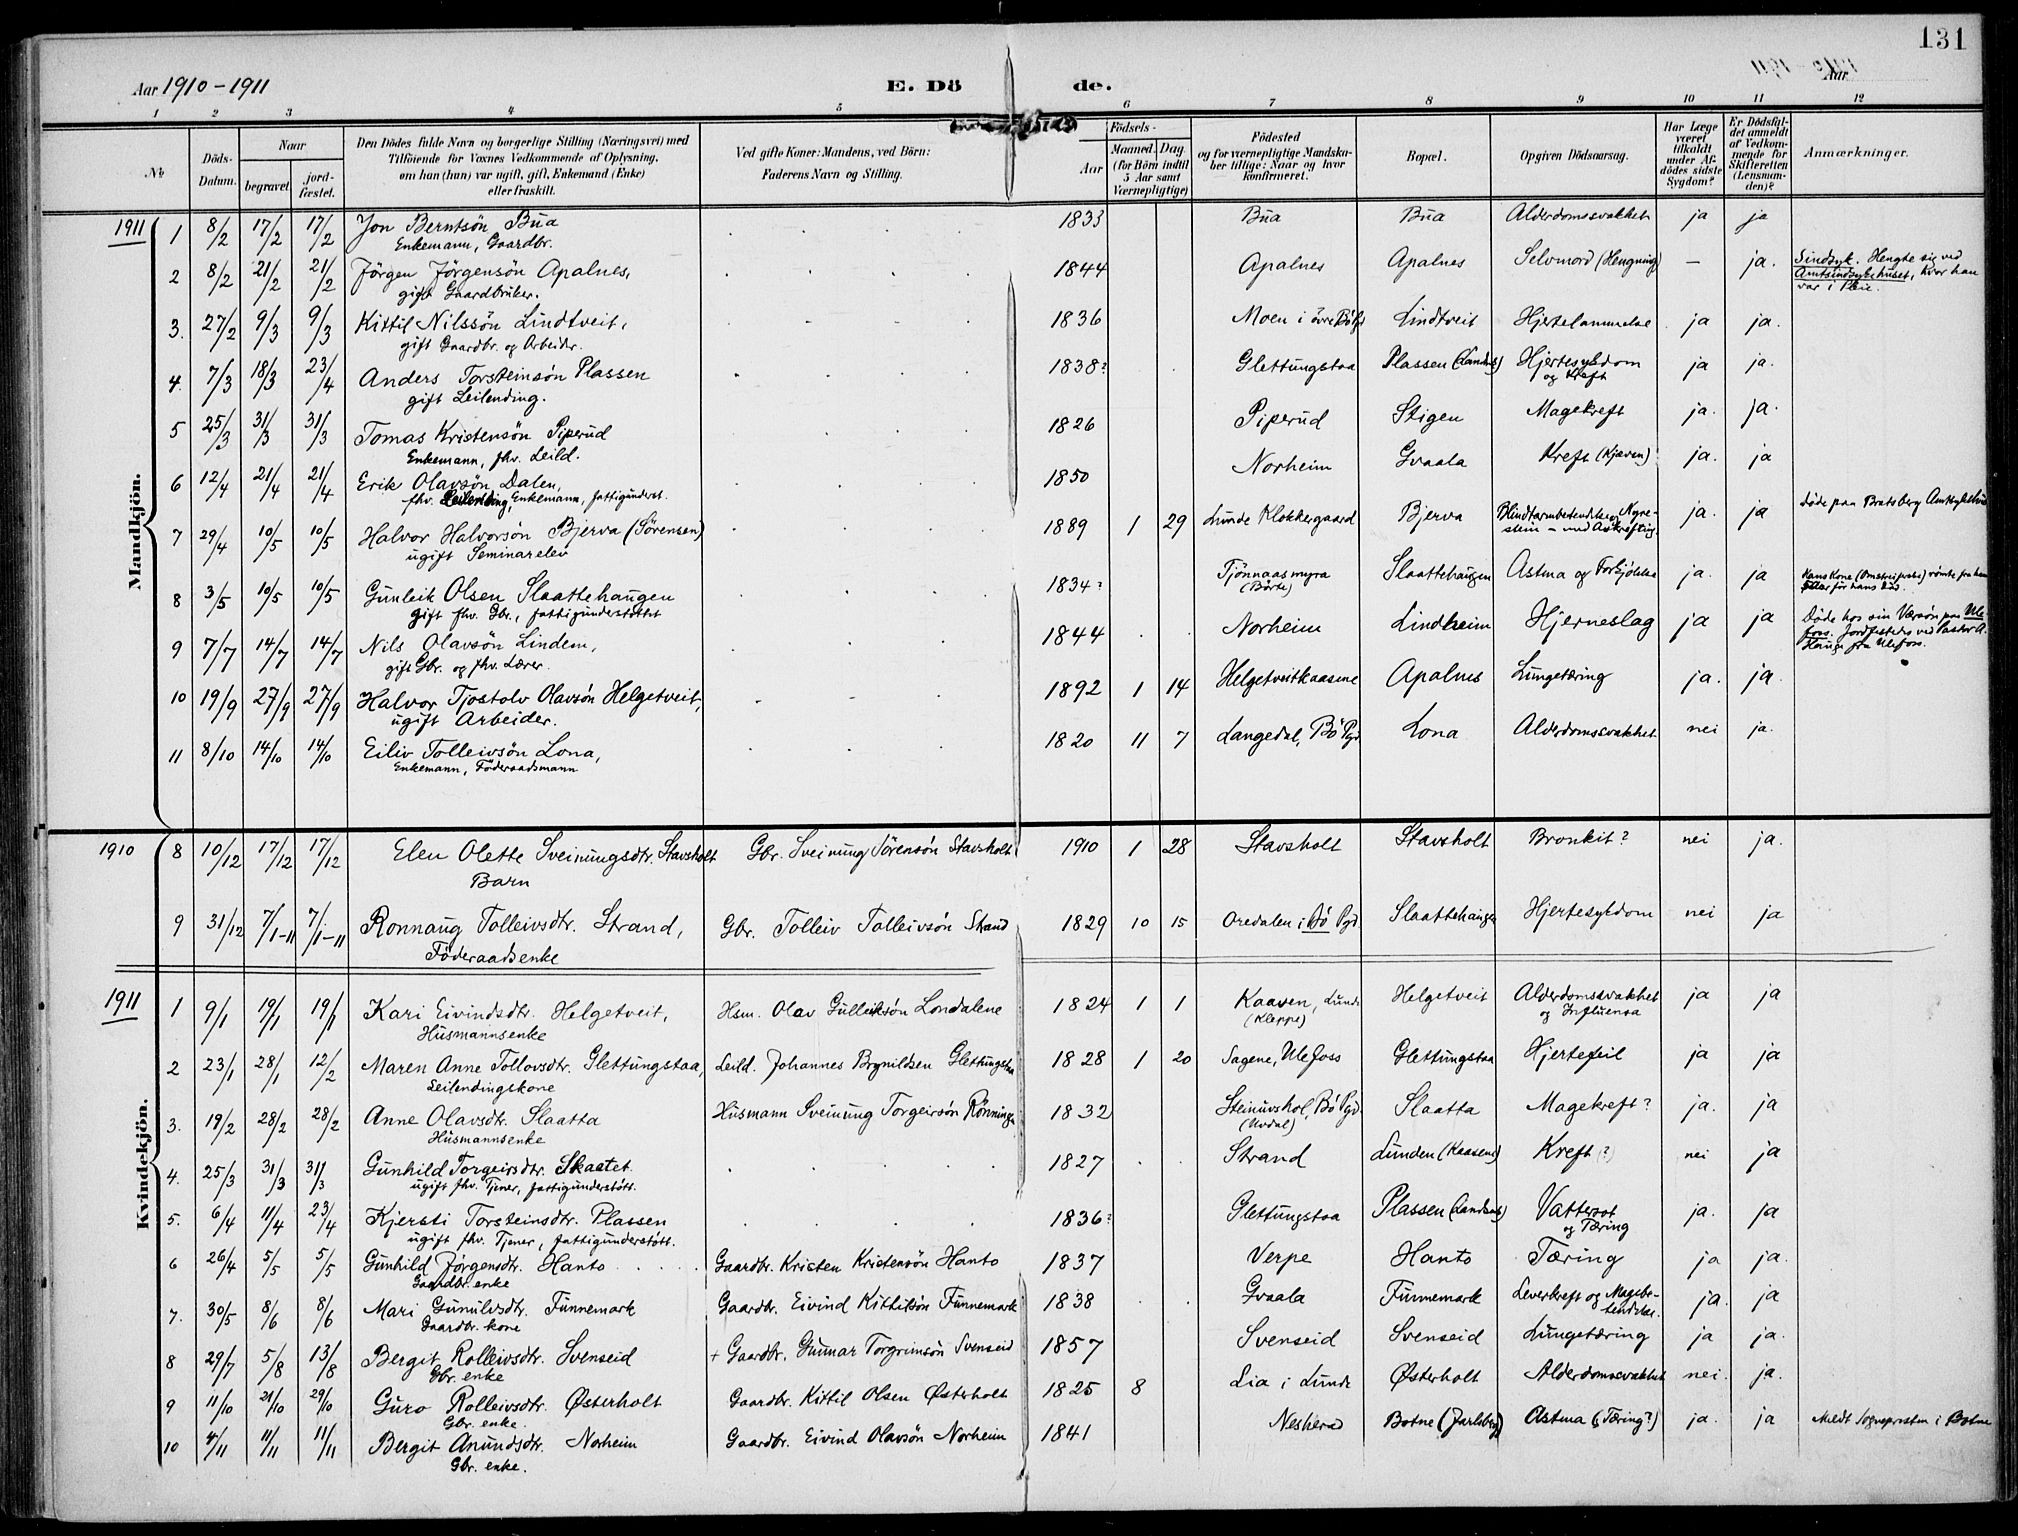 131
Aar 1910 - 1911
E. Döde.
Aar
1 2 3 4 5 6 7 8 9 10 11 12
№
Döds-Datum.
Naar
begravet.
jord-fæstet.
Den Dödes fulde Navn og borgerlige Stilling (Næringsvei) med
Tilföiende for Voxnes Vedkommende af Oplysning,
om han (hun) var ugift, gift, Enkemand (Enke)
eller fraskilt.
Ved gifte Koner: Mandens, ved Börn:
Faderens Navn og Stilling.
Födsels-
Aar
Maaned. Dag.
(for Börn indtil
5 Aar samt
Værnepligtige)
Födested
og for værnepligtige Mandska-
ber tillige: Naar og hvor
konfirmeret.
Bopæl.
Opgiven Dödsaarsag.
Har Læge
været
tilkaldt
under Af-
dödes sidste
Sygdom?
Er Dödsfal-
det anmeldt
af Vedkom-
mende for
Skifteretten
(Lensman-
den)?
Anmærkninger.
Mandkjön.
1911 1 8/2 17/2 17/2 Jon Berntsön Bua 1833 Bua Bua Alderdomssvakhet ja ja
Enkemann, Gaardbr.
2 8/2 21/2 21/2 Jörgen Jörgensön Apalnes, 1844 Apalnes Apalnes Selvmord (Hengning) — ja. Sindsyk. Hengte sig ved
gift Gaardbruker. Amtsindsykehuset, hvor han
var i Pleie.
3. 27/2 9/3 9/3 Kittil Nilssön Lindtveit, 1836 Moen i övre Bö Lindtveit Hjertelammelse ja ja.
gift Gaardbr. og Arbeider.
4. 7/3 18/3 23/4 Anders Torsteinsön Plassen 1838? Glettungstaa Plassen Hjertesykdom ja ja.
gift Leilending. og Kreft
5 25/3 31/3 31/3 Tomas Kristensön Piperud 1826 Piperud Stigen Magekreft ja. ja.
Enkemann, fhv. Leild.
6 12/4 21/4 21/4 Erik Olavsön Dalen, 1850 Norheim Gvaala Kreft (Kjæven) ja. ja
fhv. Leilending, Enkemann, fattigunderst.
7 29/4 10/5 10/5 Halvor Halvorsön Bjerva (Sörensen) 1889 1 29 Lunde Klokkergaard Bjerva Blindtarmbetendelse, Nyre- ja. ja Döde paa Bratsberg Amtsykehus
ugift Seminarelev stein
8 3/5 10/5 10/5 Gunleik Olsen Slaattehaugen 1834? Tjönnaasmyra Slaattehaugen Astma og Forkjölelse ja. ja Hans Kone römte fra ham
gift fhv. Gbr., fattigunderstöttet (Börte) för hans Död.
9 7/7 14/7 14/7 Nils Olavsön Lindem, 1844 Norheim Lindheim Hjerneslag ja ja Döde hos sin Værsön paa Ule-
gift Gbr. og fhv. Lærer. foss. Jordfæstedes ved Pastor A.
Hauge fra Ulefoss.
10 19/9 27/9 27/9 Halvor Tjostolv Olavsön Helgetveit, 1892 1 14 Helgetveitkaasene Apalnes Lungetæring ja. ja.
ugift Arbeider.
11 8/10 14/10 14/10 Eiliv Tolleivsön Lona, 1820 11 7 Langedal, Bö Pgd Lona Alderdomssvakhet nei ja.
Enkemann, Föderaadsmann
Kvindekjön.
1910 8 10/12 17/12 17/12 Elen Olette Sveinungsdtr. Stavsholt Gbr. Sveinung Sörensön Stavsholt 1910 1 28 Stavsholt Stavsholt Bronkit? nei ja.
Barn
9 31/12 7/1-11 7/1-11 Ronnaug Tolleivsdtr. Strand, Gbr. Tolleiv Tolleivsön Strand 1829 10 15 Oredalen i Bö Pgd. Slaattehaugen Hjertesykdom nei ja
Föderaadsenke
1911 1 9/1 19/1 19/1 Kari Eivindsdtr. Helgetveit, Hsm. Olav Gulleiksön Londalene 1824 1 1 Kaaven, Lunde Helgetveit Alderdomssvakhet ja ja
Husmannsenke (Kleppe) og Influensa
2 23/1 28/1 12/2 Maren Anne Tollovsdtr. Glettungstaa, Leild. Johannes Brynildsen Glettungstaa 1828 1 20 Sagene, Ulefoss Glettungstaa Hjertefeil ja ja
Leilendingskone
3. 19/2 28/2 28/2 Anne Olavsdtr. Slaatta Husmann Sveinung Torgeirsön Rönningen 1832 Steinuvshol, Bö Pgd Slaatta Magekreft? ja. ja
Husmannsenke (Uvdal)
4. 25/3 31/3 31/3 Gunhild Torgeirsdtr. Skaatet. 1827 Strand Lunden (Kaasene) Kreft (?) nei ja
ugift fhv. Tjener, fattigunderstött.
5. 6/4 11/4 23/4 Kjersti Torsteinsdtr. Plassen 1836? Glettungstaa Plassen Vattersot ja. ja
ugift fhv. Tjener, fattigunderstött. og Tæring
6 26/4 5/5 5/5 Gunhild Jörgensdtr. Hanto Gaardbr. Kristen Kristensön Hanto 1837 Verpe Hanto Tæring ja ja.
Gaardbr. enke
7. 30/5 8/6 8/6 Mari Gunulvsdtr. Funnemark Gaardbr. Eivind Kittilsön Funnemark 1838 Gvaala Funnemark Leverkreft og Magebe- ja. ja
Gaardbr. kone tendelse.
8 29/7 5/8 13/8 Bergit Rolleivsdtr. Svenseid + Gaardbr. Gunnar Torgrimsön Svenseid 1857 Svenseid Svenseid Lungetæring ja ja.
Gbr. enke
9 11/10 21/10 29/10 Guro Rolleivsdtr. Østerholt Gaardbr. Kittil Olsen Østerholt 1825 8 Lia i Lunde Østerholt Alderdomssvakhet nei. ja.
Gbr. enke.
10 4/11 11/11 11/11 Bergit Anundsdtr. Norheim Gaardbr. Eivind Olavsön Norheim 1841 Nesherad Botne (Jarlsberg) Astma (Tæring?) ja. ja Meldt Sogneprosten i Botne
Gbr. enke.